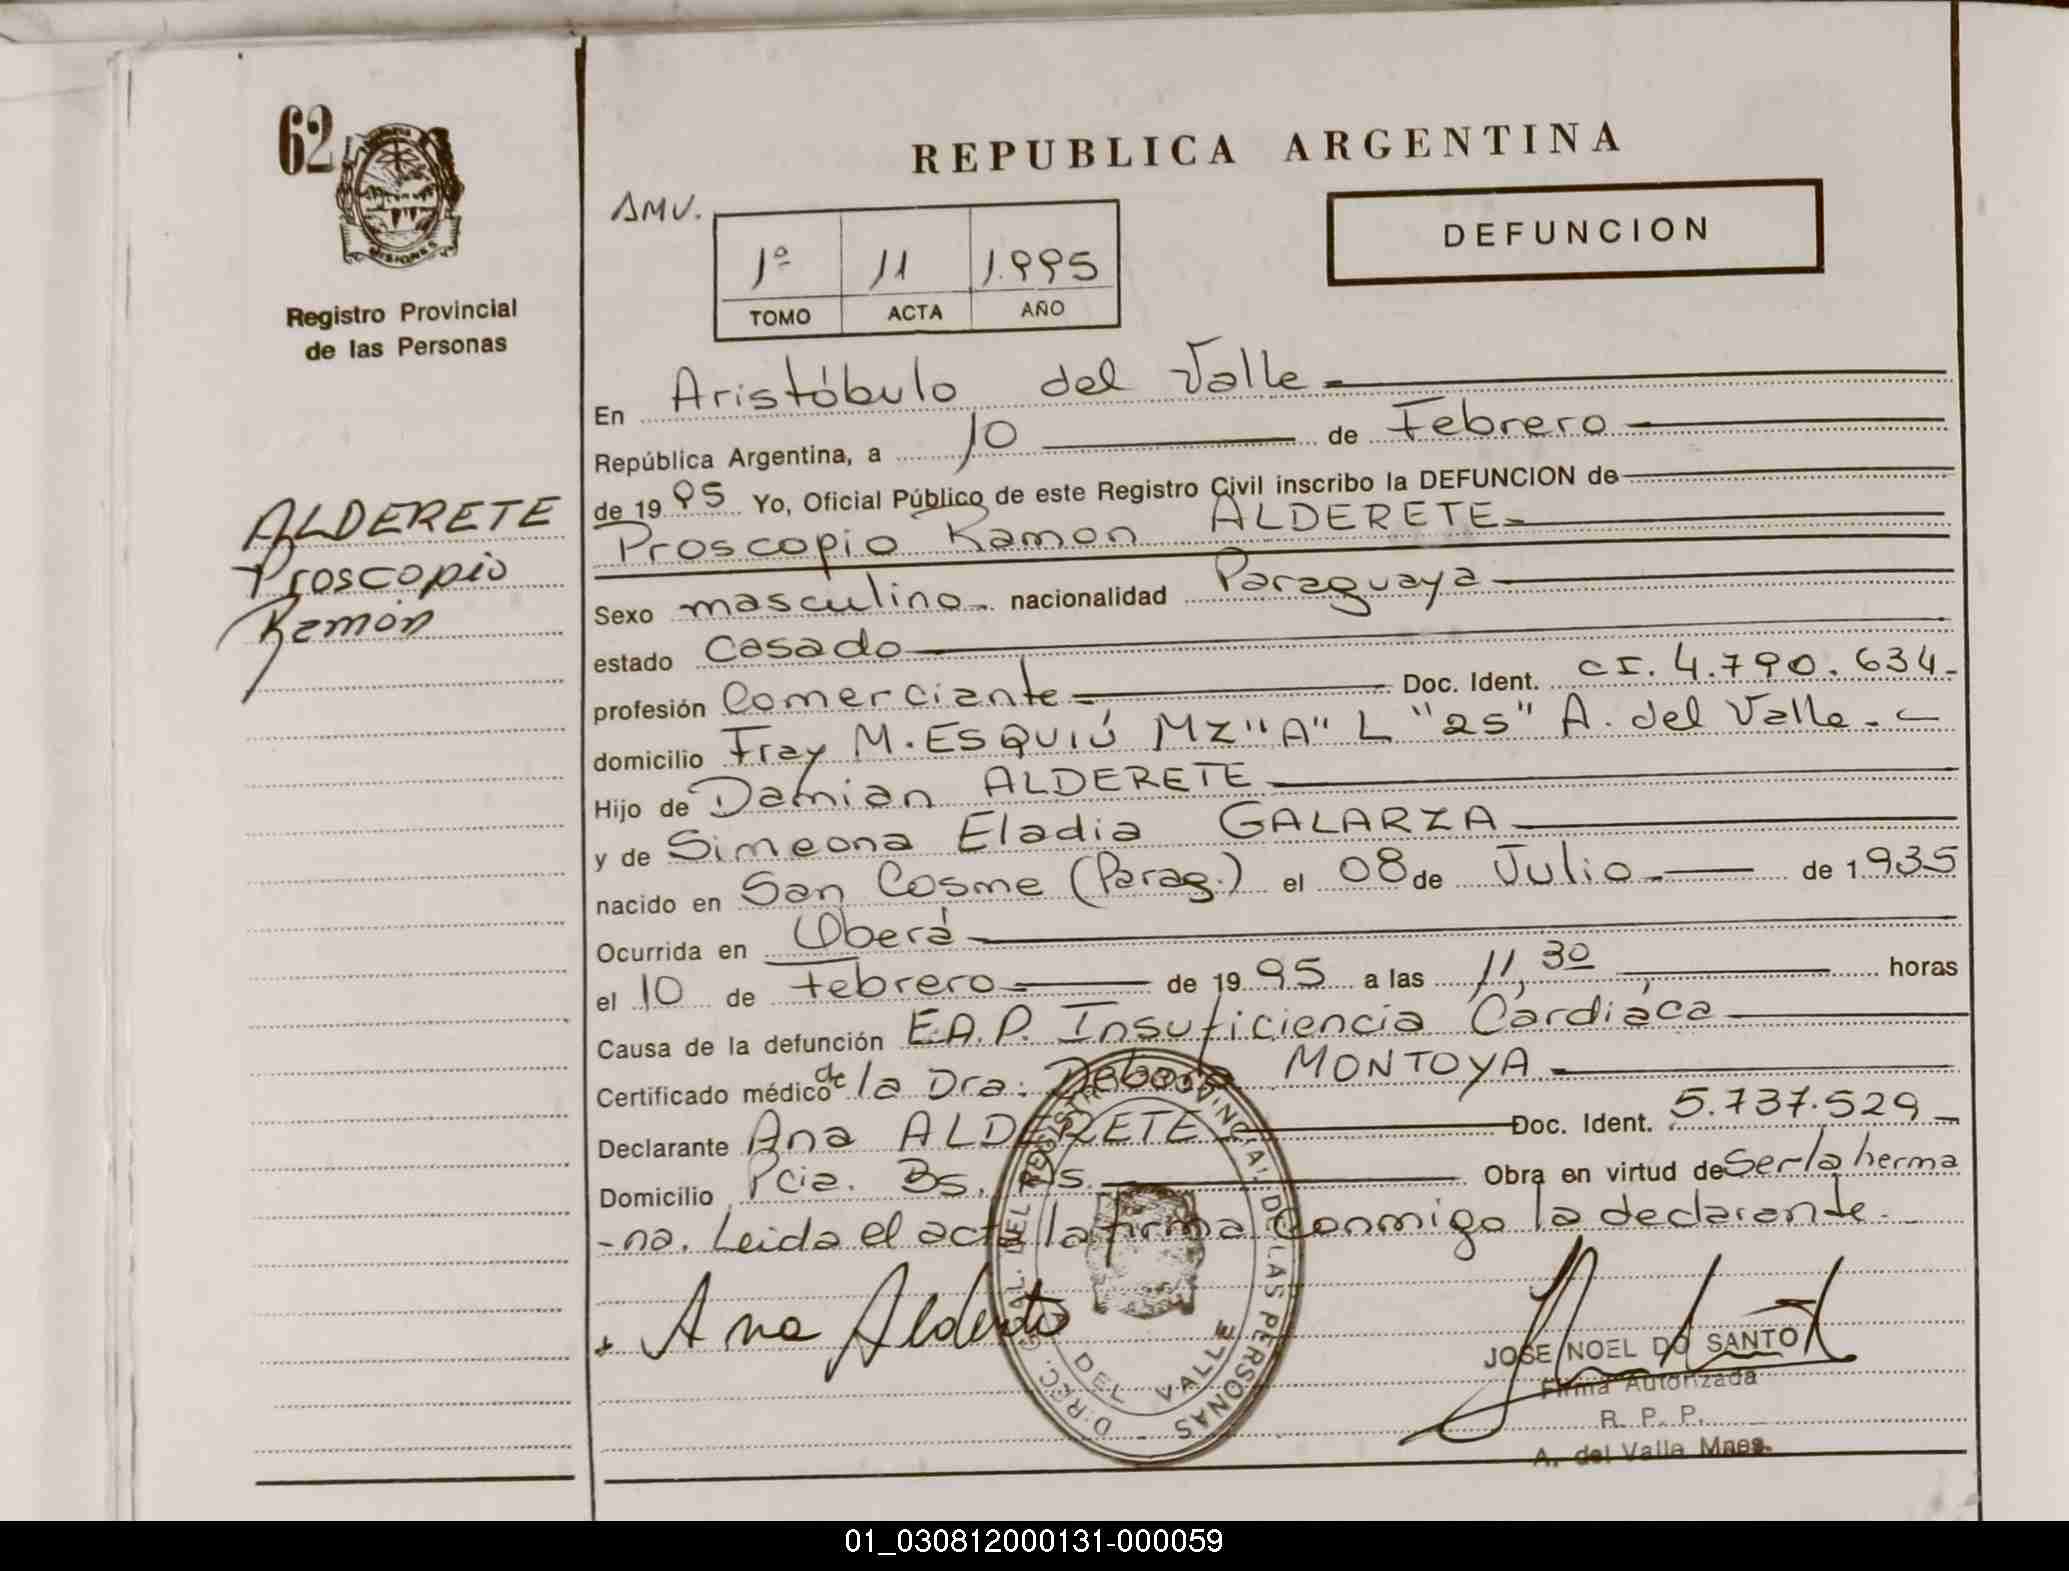 62
MISIONES
Registro Provincial
de las Personas
ALDERETE
Proscopio
Ramón
REPUBLICA ARGENTINA
AMV.
1º 11 1.995
TOMO ACTA AÑO
DEFUNCION
En Aristóbulo del Valle
República Argentina, a 10 de Febrero
de 1995 Yo, Oficial Público de este Registro Civil inscribo la DEFUNCION de
Proscopio Ramon ALDERETE
Sexo masculino nacionalidad Paraguaya
estado Casado
profesión Comerciante Doc. Ident. CI. 4.790.634
domicilio Fray M. ESQUIÚ MZ "A" L "25" A. del Valle.
Hijo de Damian ALDERETE
y de Simeona Eladia GALARZA
nacido en San Cosme (Parag.) el 08 de Julio de 1.935
Ocurrida en Oberá
el 10 de Febrero de 1995 a las 11,30 horas
Causa de la defunción E.A.P. Insuficiencia Cárdiáca
Certificado médico de la Dra: Debora MONTOYA
Declarante Ana ALDERETE Doc. Ident. 5.737.529
Domicilio Pcia. Bs. As. Obra en virtud de Ser la herma
-na. Leida el acta la firma conmigo la declarante.
Ana Alderete
DIREC. GRAL. DEL REGISTRO PROVINCIAL DE LAS PERSONAS
DEL VALLE
JOSE NOEL DO SANTO
Firma Autorizada
R. P. P.
A. del Valle Mnes.
01_030812000131-000059